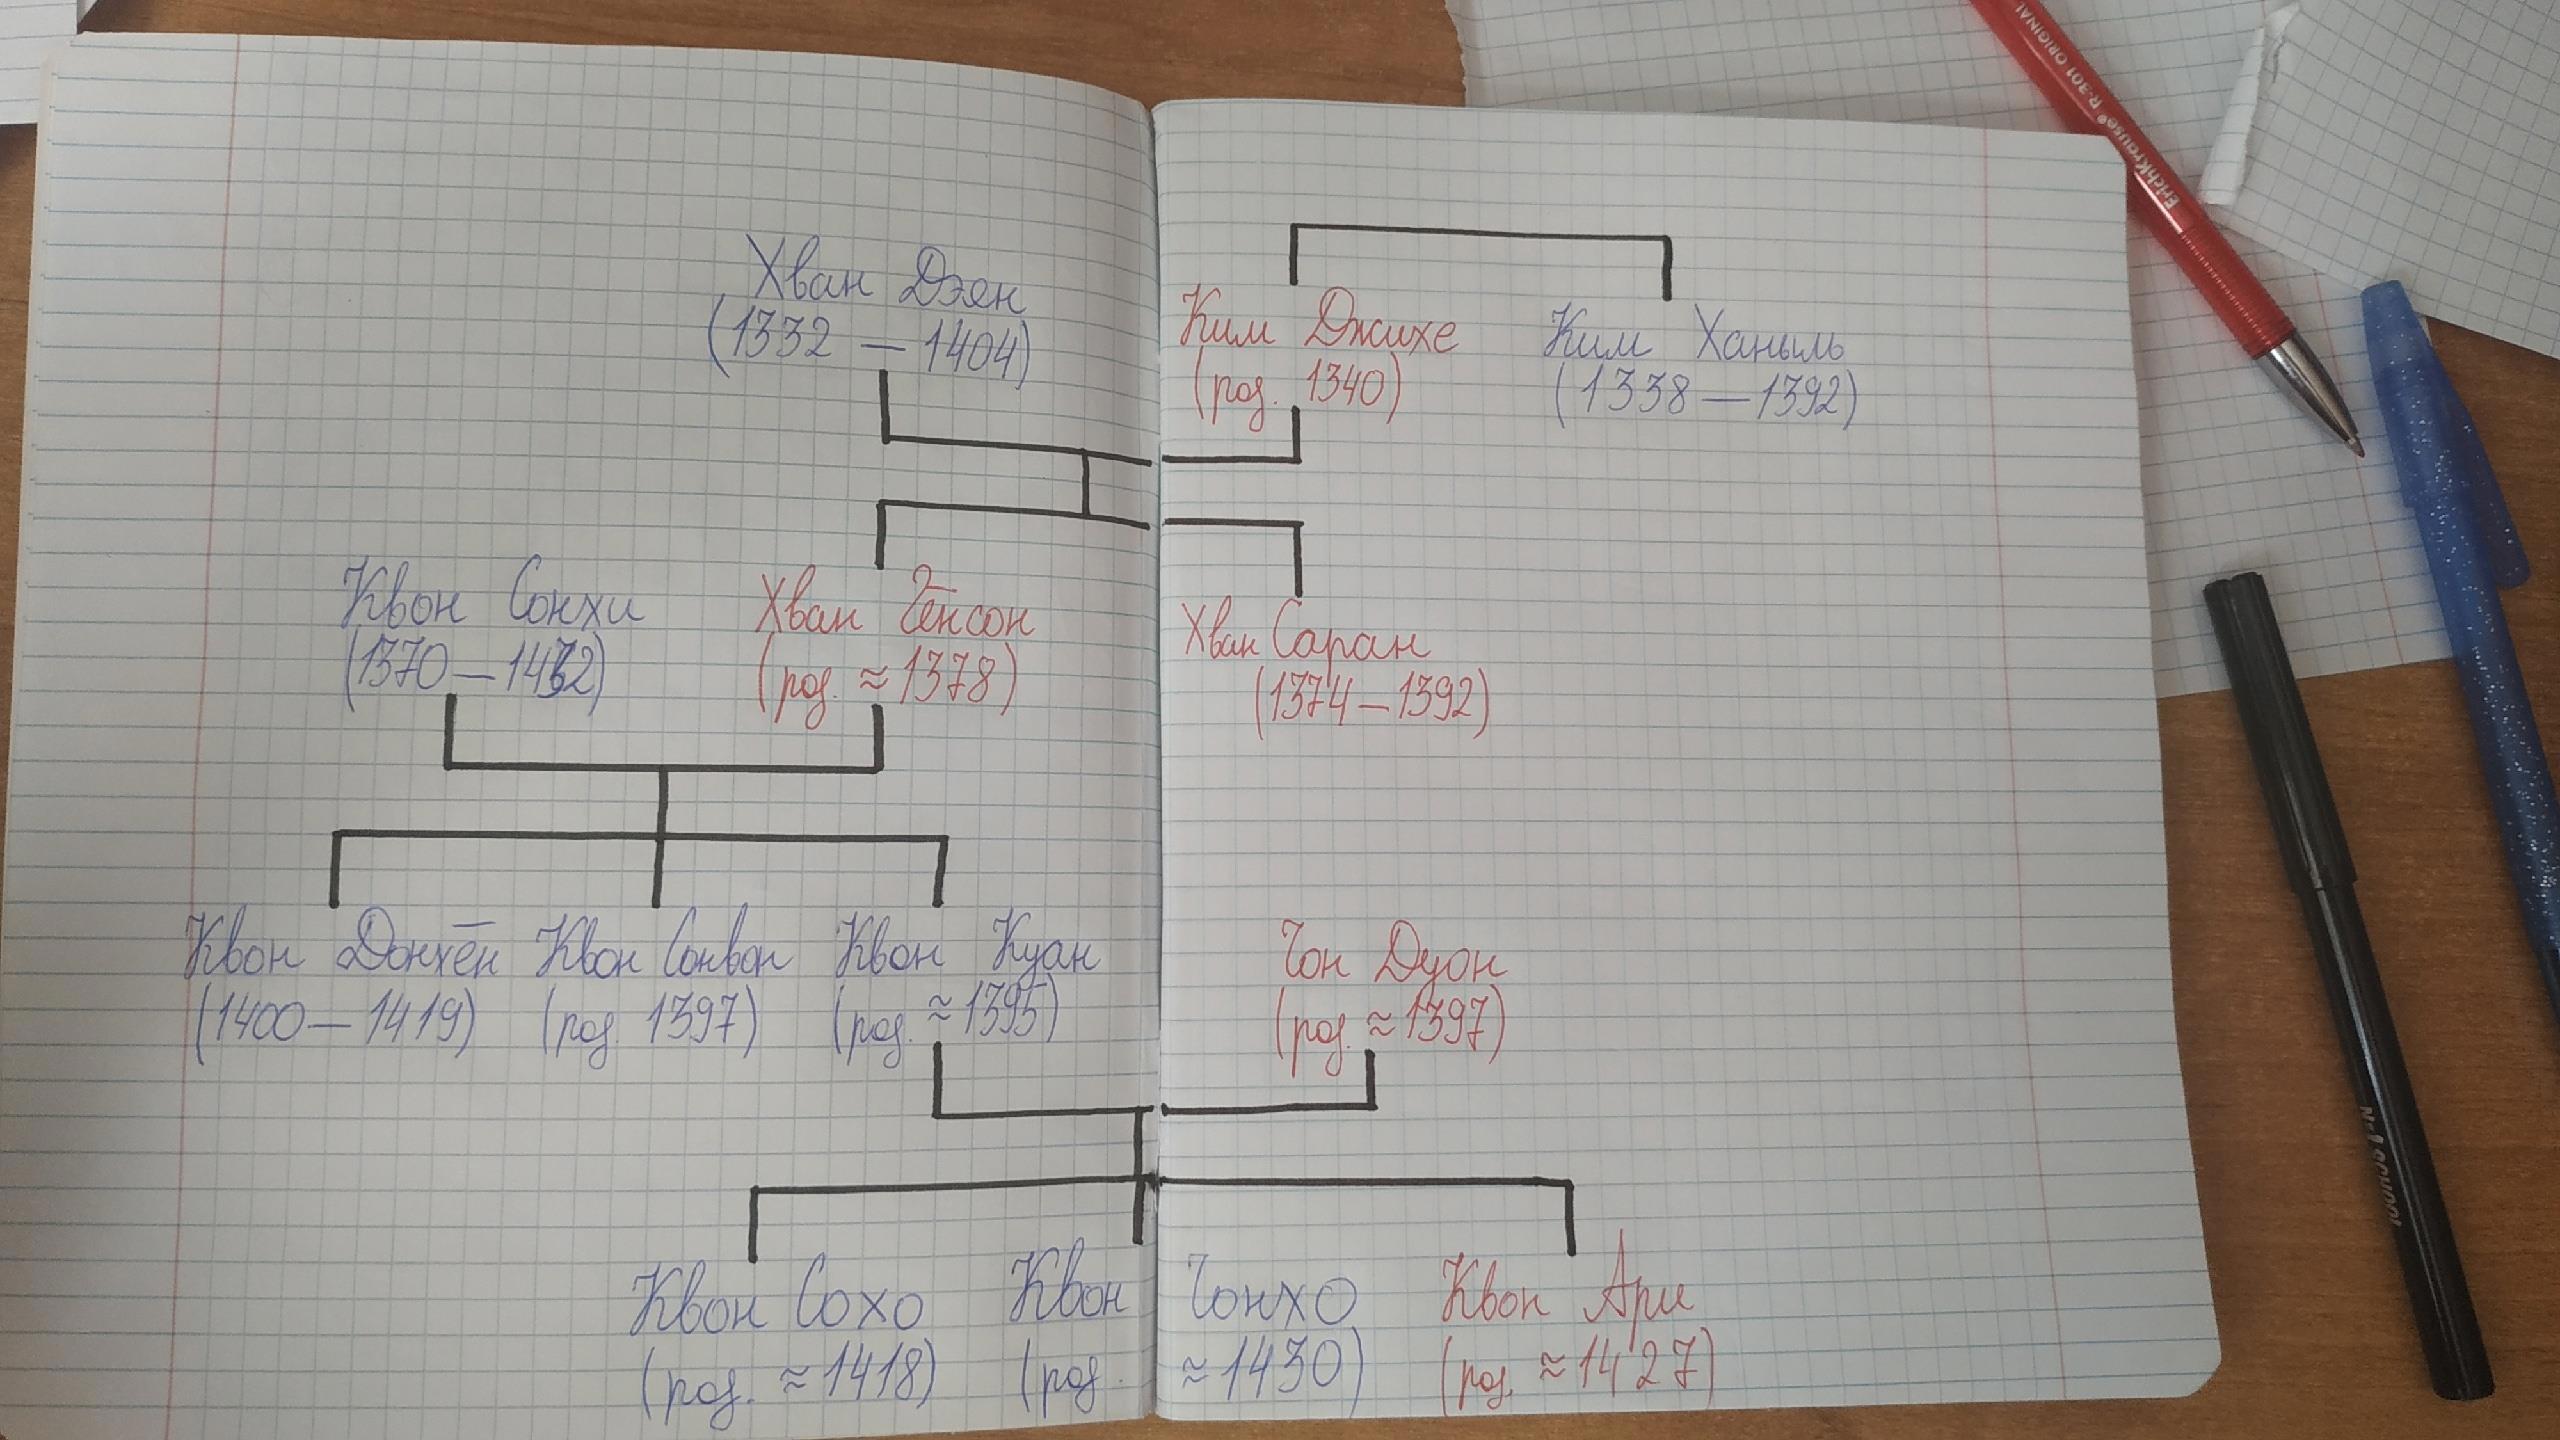 Хван Дэян
(1332 — 1404)
Ким Джихе
(род. 1340)
Ким Ханыль
(1338 — 1392)
Квон Сонхи
(1370 — 1432)
Хван Ёнсон
(род. ≈ 1378)
Хван Саран
(1374 — 1392)
Квон Донхён
(1400 — 1419)
Квон Сонвон
(род. 1397)
Квон Куан
(род. ≈ 1395)
Чон Дуон
(род. ≈ 1397)
Квон Сохо
(род. ≈ 1418)
Квон Чонхо
(род. ≈ 1430)
Квон Ари
(род. ≈ 1427)
ErichKrause® R-301 ORIGINAL
№1 SCHOOL